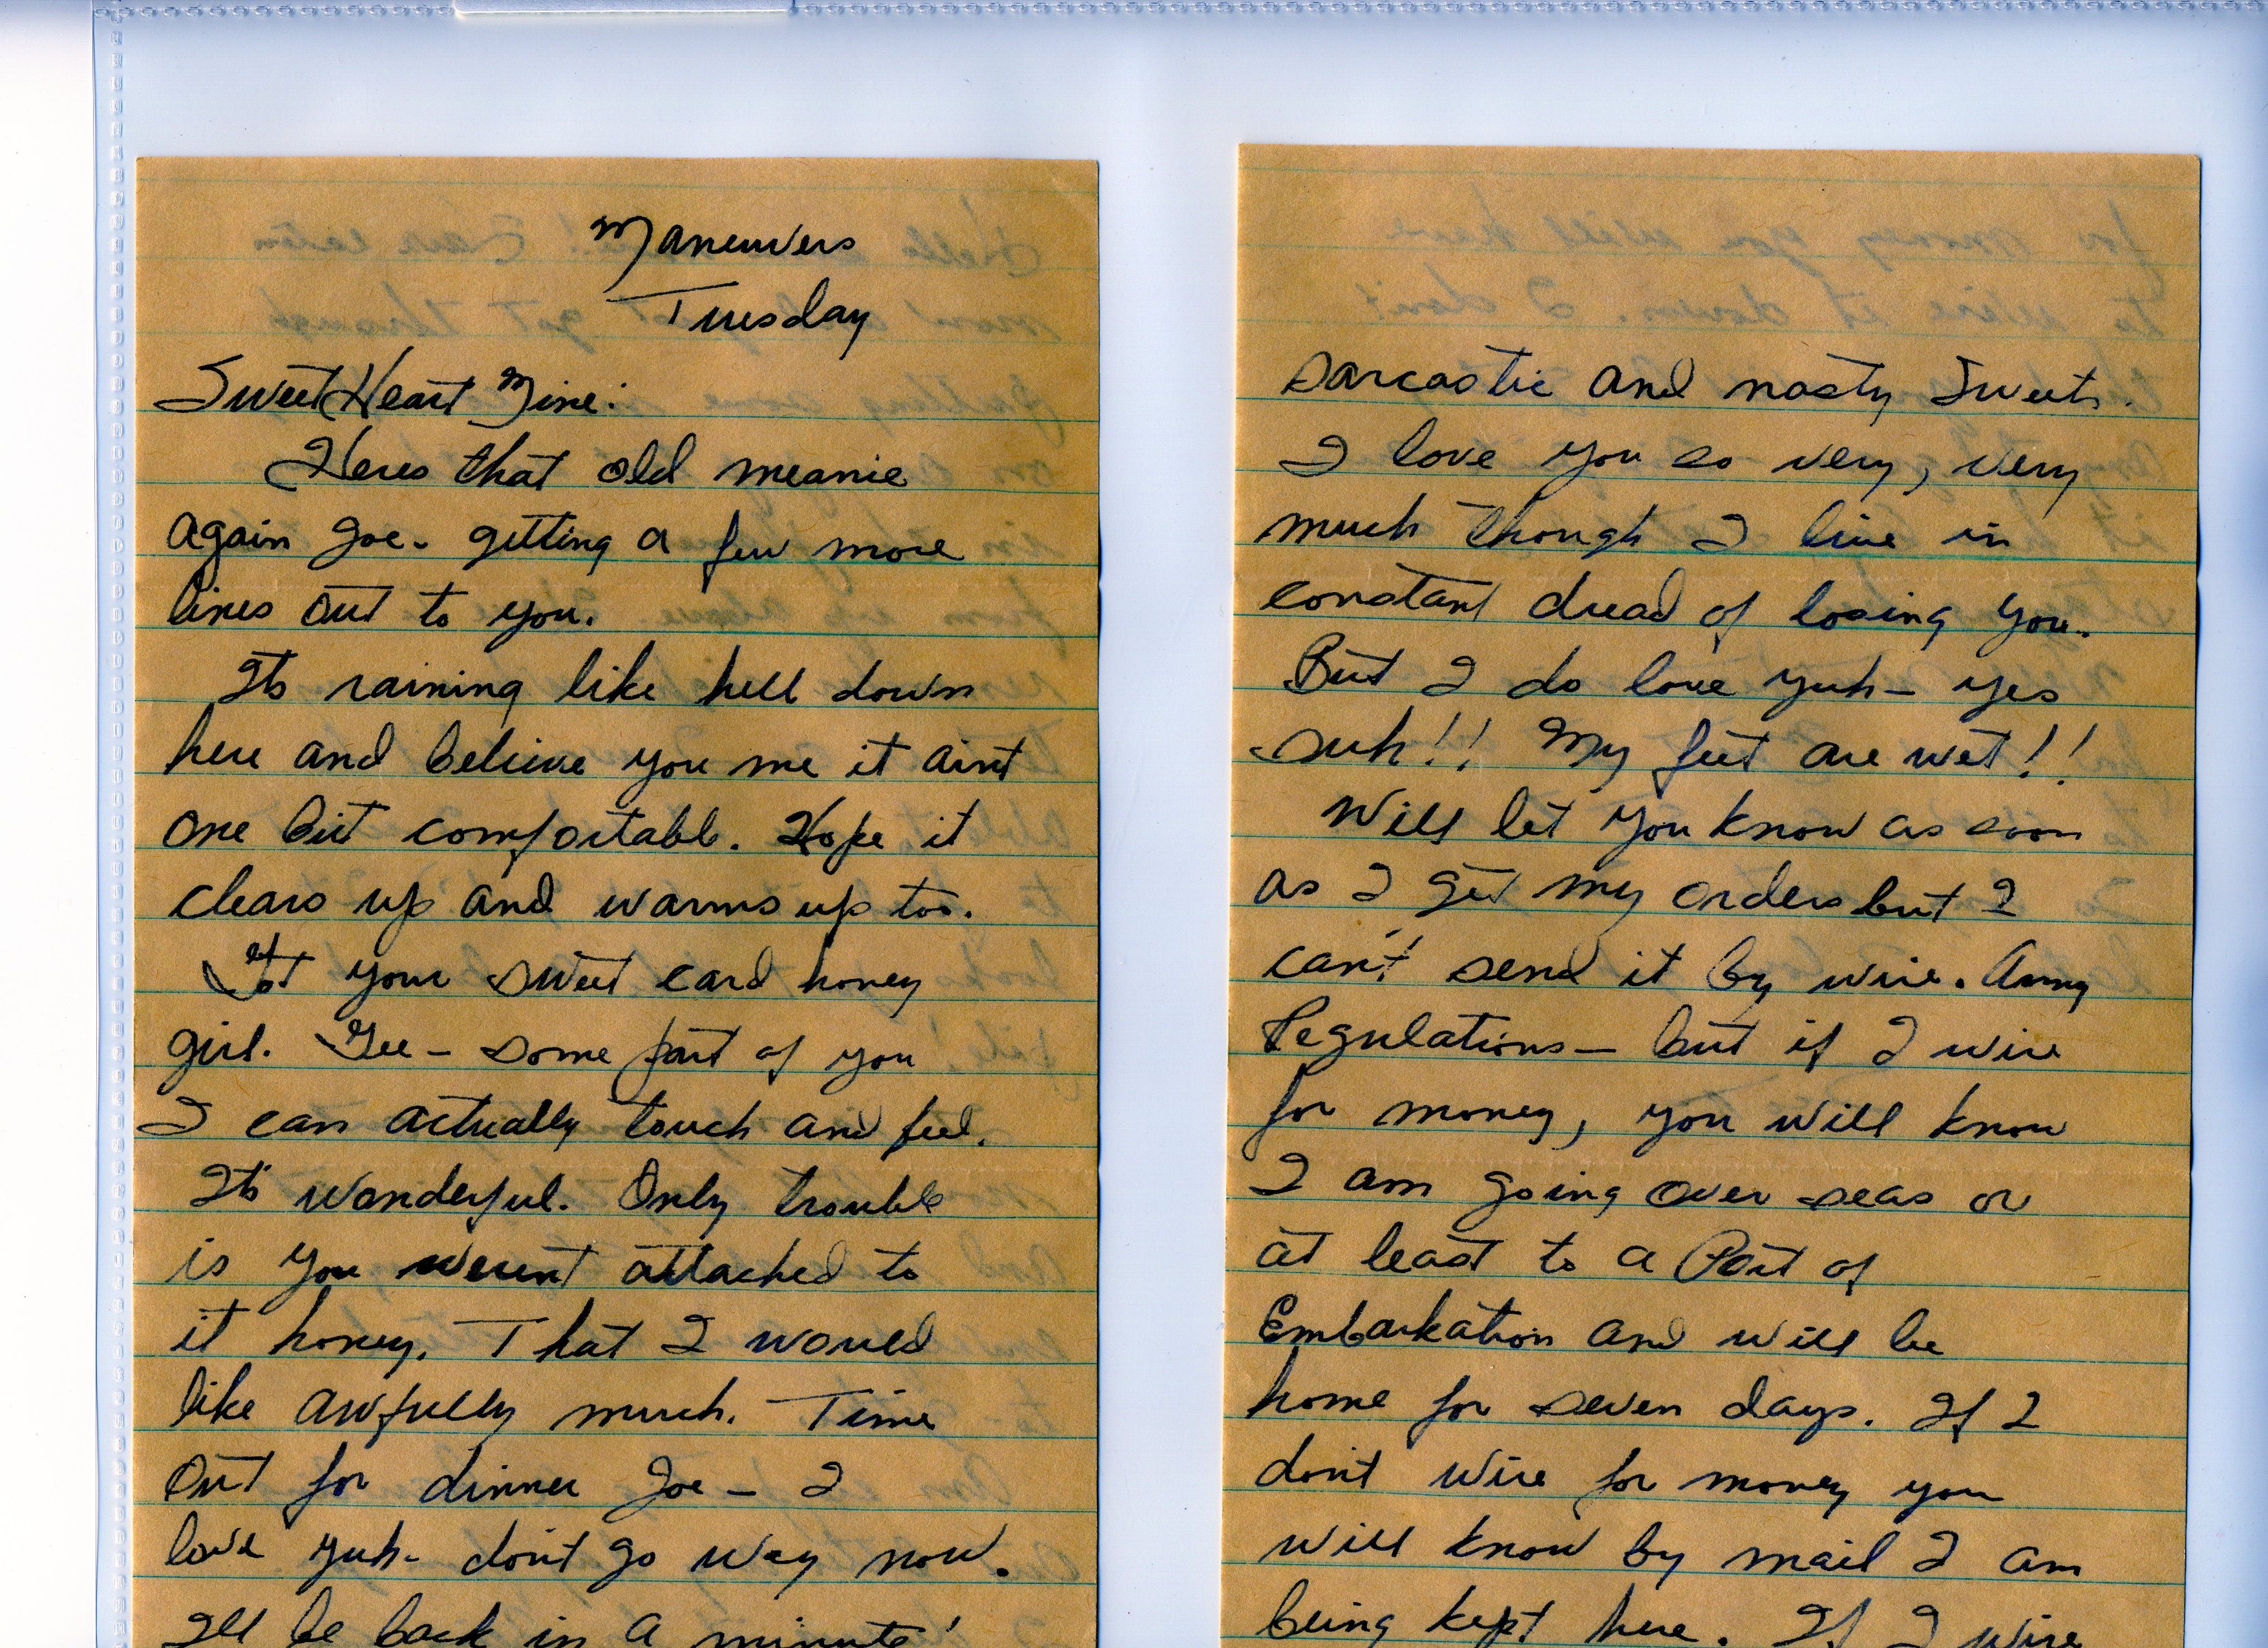 Maneuvers
Tuesday
SweetHeart Mine:
Heres that old meanie
again Joe - getting a few more
lines out to you.
Its raining like hell down
here and believe you me it aint
one bit comfortable. Hope it
clears up and warms up too.
Got your sweet card honey
girl. Gee - some part of you
I can actually touch and feel.
It's wonderful. Only trouble
is you werent attached to
it honey. That I would
like awfully much. Time
out for dinner Joe - I
love yuh - don't go way now.
I'll be back in a minute!
sarcastic and nasty Sweets.
I love you so very, very
much though I live in
constant dread of losing you.
But I do love yuh - yes
suh!! My feet are wet!!
Will let you know as soon
as I get my orders but I
can't send it by wire. Army
Regulations - but if I wire
for money, you will know
I am going over seas or
at least to a Port of
Embarkation and will be
home for seven days. If I
don't wire for money you
will know by mail I am
being kept here. If I wire